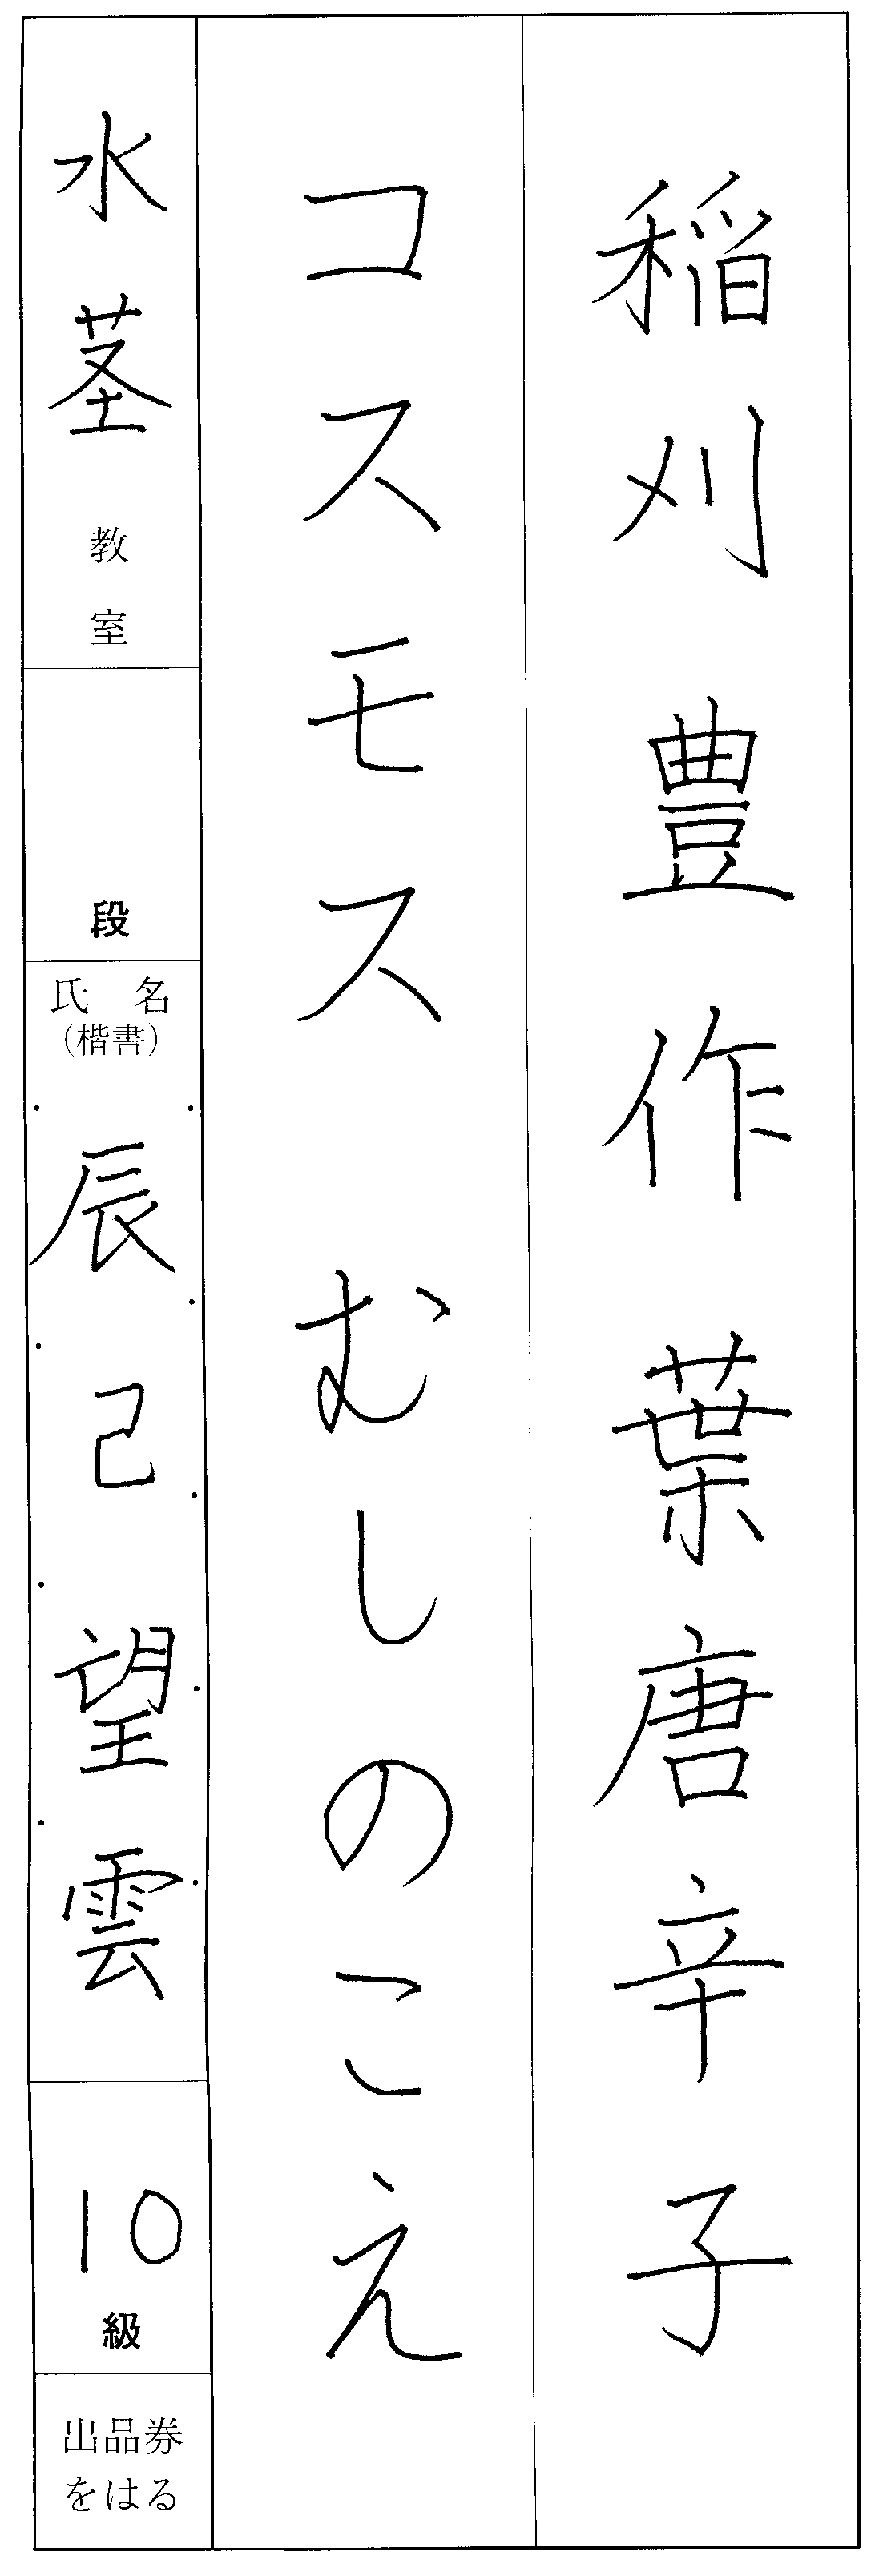 稲刈豊作葉唐辛子
コスモス むしのこえ
水茎教室
段
氏名
(楷書)
辰己望雲
10級
出品券
をはる